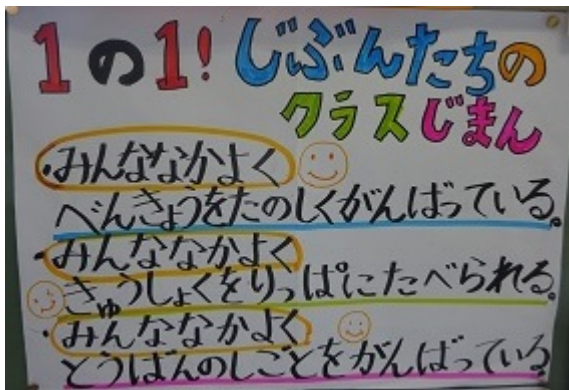 1の1! じぶんたちの
クラスじまん
・みんななかよく
べんきょうをたのしくがんばっている。
・みんななかよく
きゅうしょくをりっぱにたべられる。
・みんななかよく
とうばんのしごとをがんばっている